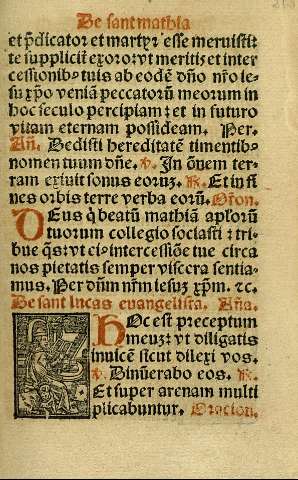 De sant mathia
et p̄dicator et martyꝛ esse meruisti: ꝛ
te supplicii exoro: vt meritis et inter
cessionib⁹ tuis ab eodē dño nr̄o ie-
su xp̄o veniā peccatoꝝ meorum in
hoc seculo percipiam: et in futuro
vitam eternam possideam. Per.
Añ. Dedisti hereditatē timentib⁹
nomen tuum dñe. ℣. In oēm ter-
ram exiuit sonus eoruꝫ. ℟. Et in fi
nes orbis terre verba eoꝝ. Oꝛōn.
DEus q̇ beatū mathiā aploꝝ
tuorum collegio sociasti: tri-
bue q̄s: vt ei⁹ intercessiōe tue circa
nos pietatis semper viscera sentia-
mus. Per dūm nr̄m iesuꝫ xp̄m. ⁊c.
De sant lucas euangelista. Aña.
HOc est preceptum
meuꝫ: vt diligatis
inuicē sicut dilexi vos.
℣. Dinūerabo eos. ℟.
Et super arenam multi
plicabuntur. Oracion.